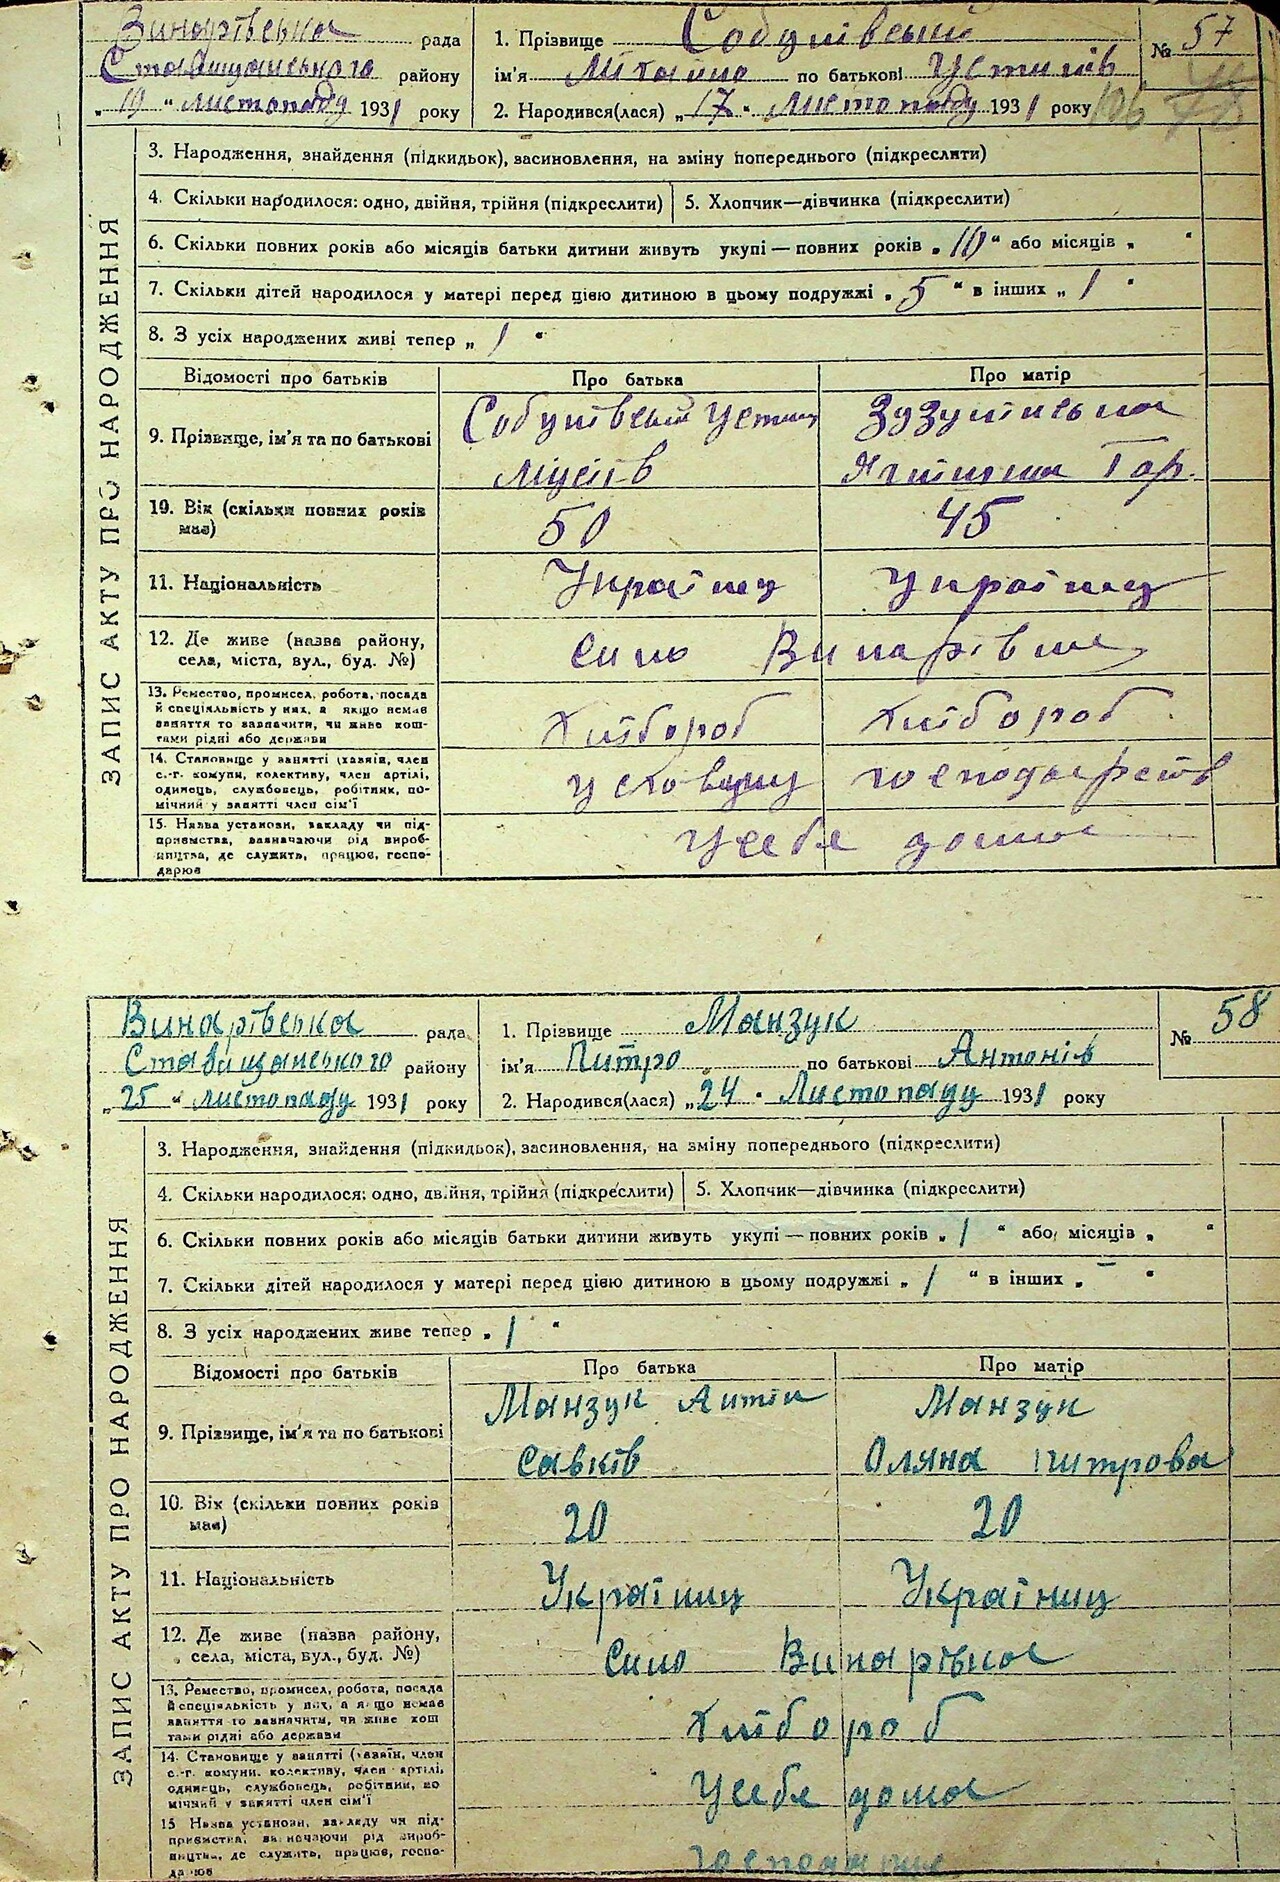 Винарівська рада
Ставищанського району
„19“ листопаду 1931 року
1. Прізвище Собутівський
ім'я Міхайло по батькові Устинів
2. Народився(лася) „17“ Листопаду 1931 року
№ 57
106
ЗАПИС АКТУ ПРО НАРОДЖЕННЯ
3. Народження, знайдення (підкидьок), засиновлення, на зміну попереднього (підкреслити)
4. Скільки народилося: одно, двійня, трійня (підкреслити) 5. Хлопчик—дівчинка (підкреслити)
6. Скільки повних років або місяців батьки дитини живуть укупі — повних років „10“ або місяців „ “
7. Скільки дітей народилося у матері перед цією дитиною в цьому подружжі „5“ в інших „1“
8. З усіх народжених живі тепер „1“
Відомості про батьків Про батька Про матір
9. Прізвище, ім'я та по батькові
Собутівський Устин
Зузулінська
Гор.
10. Вік (скільки повних років має)
50 45
11. Національність
Українец Українец
12. Де живе (назва району,
села, міста, вул., буд. №)
Сило Винарівка
13. Ремество, промисел, робота, посада
й спеціяльність у них, а якщо немає
заняття то зазначити, чи живе кош-
тами рідні або держави
Хлібороб Хлібороб
14. Становище у занятті (хазяїн, член
с.-г. комуни, колективу, член артілі,
одинець, службовець, робітник, по-
мічний у занятті член сім'ї
господарств
15. Назва установи, закладу чи під-
приємства, зазначаючи рід вироб-
ництва, де служить, працює, госпо-
дарює
Усебя дома
Винарівська рада
Ставищанського району
„25“ листопаду 1931 року
1. Прізвище Манзук
ім'я Питро по батькові Антонів
2. Народився(лася) „24“ Листопаду 1931 року
№ 58
ЗАПИС АКТУ ПРО НАРОДЖЕННЯ
3. Народження, знайдення (підкидьок), засиновлення, на зміну попереднього (підкреслити)
4. Скільки народилося: одно, двійня, трійня (підкреслити) 5. Хлопчик—дівчинка (підкреслити)
6. Скільки повних років або місяців батьки дитини живуть укупі — повних років „1“ або місяців „ “
7. Скільки дітей народилося у матері перед цією дитиною в цьому подружжі „1“ в інших „–“
8. З усіх народжених живе тепер „1“
Відомості про батьків Про батька Про матір
9. Прізвище, ім'я та по батькові
Манзук Антін Манзук
Савків Оляна Питрова
10. Вік (скільки повних років має)
20 20
11. Національність
Україниц Україниц
12. Де живе (назва району,
села, міста, вул., буд. №)
Сило Винарівка
13. Ремество, промисел, робота, посада
й спеціяльність у них, а якщо немає
заняття то зазначити, чи живе кош
тами рідні або держави
Хлібороб
14. Становище у занятті (хазяїн, член
с.-г. комуни, колективу, член артілі,
одинець, службовець, робітник, по
мічний у занятті член сім'ї
Усебя дома
15 Назва установи, закладу чи під-
приємства, зазначаючи рід вироб-
ництва, де служить, працює, госпо-
дарює